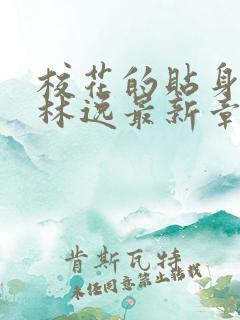 校花的贴身
林逸最新章
肯斯瓦特
未经同意禁止转载